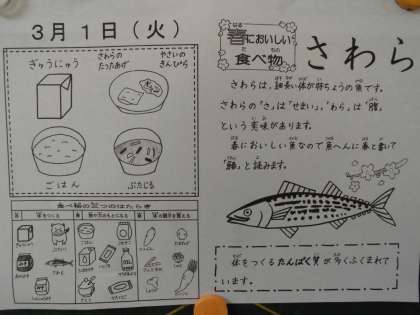 3月1日（火）
ぎゅうにゅう
さわらの
たつたあげ
やさいの
きんぴら
ごはん
ぶたじる
食べ物の三つのはたらき
体をつくる
体の調子を整える
春においしい
食べ物
さわら
さわらは、細長い体が特ちょうの魚です。
さわらの「さ」は「せまい」、「わら」は「腹」
という意味があります。
春においしい魚なので魚へんに春と書いて
「鰆」と読みます。
体をつくるたんぱく質が多くふくまれて
います。